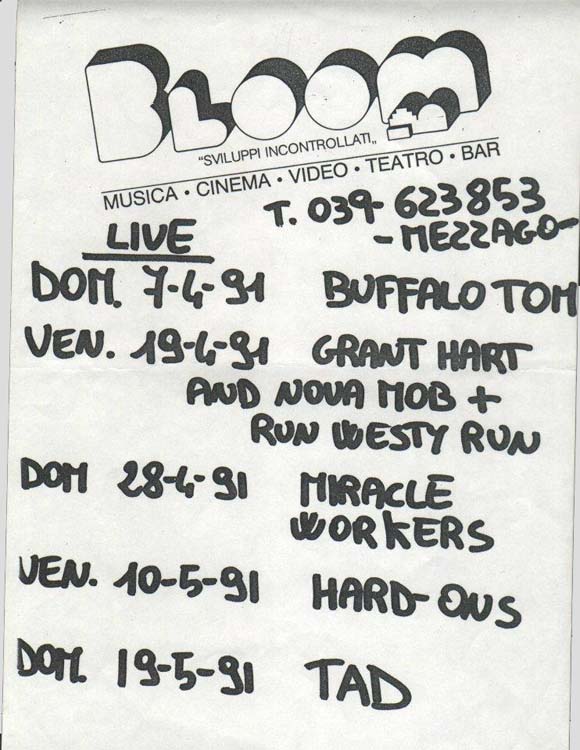 BLOOM
"SVILUPPI INCONTROLLATI„
MUSICA • CINEMA • VIDEO • TEATRO • BAR
T. 039-623853
- MEZZAGO -
LIVE
DOM. 7-4-91 BUFFALO TOM
VEN. 19-4-91 GRANT HART
AND NOVA MOB +
RUN WESTY RUN
DOM 28-4-91 MIRACLE
WORKERS
VEN. 10-5-91 HARD-ONS
DOM. 19-5-91 TAD